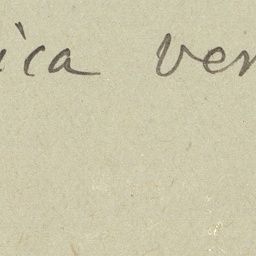 ica ver